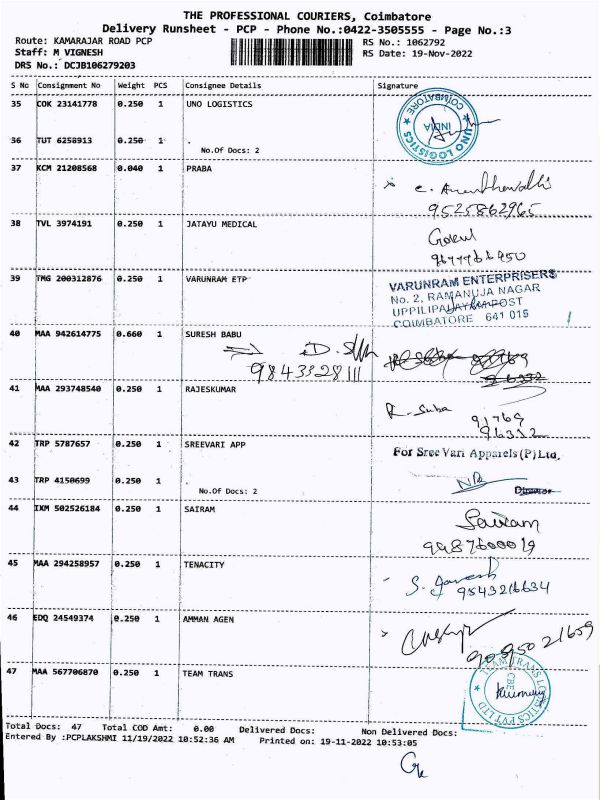 THE PROFESSIONAL COURIERS, Coimbatore
Delivery Runsheet - PCP - Phone No.:0422-3505555 - Page No.:3
Route: KAMARAJAR ROAD PCP RS No.: 1062792
Staff: M VIGNESH RS Date: 19-Nov-2022
DRS No.: DCJB106279203
S No Consignment No Weight PCS Consignee Details Signature
35 COK 23141778 0.250 1 UNO LOGISTICS
UNO LOGISTICS COIMBATORE INDIA
36 TUT 6258913 0.250 1
No.Of Docs: 2
37 KCM 21208568 0.040 1 PRABA
9525862965
38 TVL 3974191 0.250 1 JATAYU MEDICAL
Gokul
39 TMG 200312876 0.250 1 VARUNRAM ETP
VARUNRAM ENTERPRISERS
No. 2, RAMANUJA NAGAR
UPPILIPALAYAM POST
COIMBATORE 641 015
40 MAA 942614775 0.660 1 SURESH BABU
9843328111
41 MAA 293748540 0.250 1 RAJESKUMAR
R. Suba
91769
96332
42 TRP 5787657 0.250 1 SREEVARI APP
For Sree Vari Apparels (P) Ltd.
43 TRP 4150699 0.250 1
No.Of Docs: 2
Director
44 IKM 502526184 0.250 1 SAIRAM
Sairam
9987600019
45 MAA 294258957 0.250 1 TENACITY
9543216634
46 EDQ 24549374 0.250 1 AMMAN AGEN
9095021659
47 MAA 567706870 0.250 1 TEAM TRANS
TEAM TRANS LOGISTICS PVT LTD CBE
Total Docs: 47 Total COD Amt: 0.00 Delivered Docs: Non Delivered Docs:
Entered By :PCPLAKSHMI 11/19/2022 10:52:36 AM Printed on: 19-11-2022 10:53:05